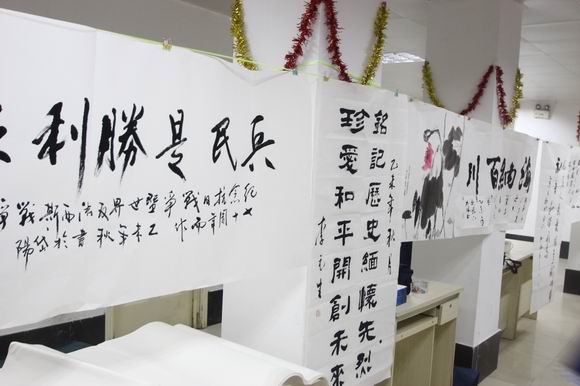 兵民是勝利
纪念抗日戰爭暨世界反法西斯戰爭
七十周年
乙未年秋書於岱陽
乙未年秋月
銘記歷史緬懷先烈
珍愛和平開創未來
海納百川